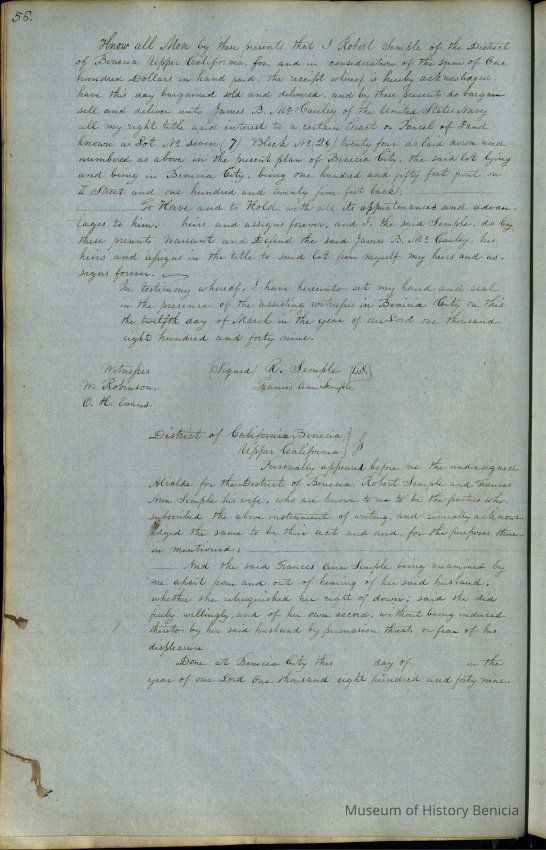 56.
Know all Men by these presents that I Robert Semple of the District
of Benicia Upper California, for, and in consideration of the sum of One
hundred Dollars in hand paid, the receipt whereof is hereby acknowledged.
have this day bargained sold and delivered, and by these presents do bargain
sell and deliver unto James B. McCauley of the United States Navy
all my right title and interest to a certain Tract or Parcel of Land
known as Lot No Seven (7) Block No (24) twenty four as laid down and
numbered as above in the present plan of Benicia City, the said lot lying
and being in Benicia City, being one hundred and fifty feet front on
Street and one hundred and twenty five feet back;
To Have and to Hold, with all its appurtenances and advan
tages to him, heirs and assigns forever, and I, the said Semple, do by
these presents Warrant and Defend the said James B. McCauley, his
heirs and assigns in the title to said lot from myself my heirs and as-
signs forever.
In testimony whereof, I have hereunto set my hand and seal
in the presence of the assisting witnesses in Benicia City, on this
the twelfth day of March in the year of our Lord one thousand
eight hundred and forty nine.
Witnesses (Signed) R. Semple [L.S.]
W. Robinson, Frances Ann Semple
O. H. Evans.
District of California Benicia
Upper California
Personally appeared before me the undersigned
Alcalde for the District of Benicia, Robert Semple and Frances
Ann Semple his wife, who are known to me to be the parties who
subscribed the above instrument of writing, and severally acknow
ledged the same to be their act and deed, for the purposes there-
in mentioned;
And the said Frances Ann Semple being examined by
me apart from and out of hearing of her said husband,
whether she relinquished her right of dower; said she did
freely, willingly, and of her own accord, without being induced
thereto by her said husband by persuasion threats or fear of his
displeasure.
Done at Benicia City this day of in the
year of our Lord One thousand eight hundred and forty nine.
Museum of History Benicia